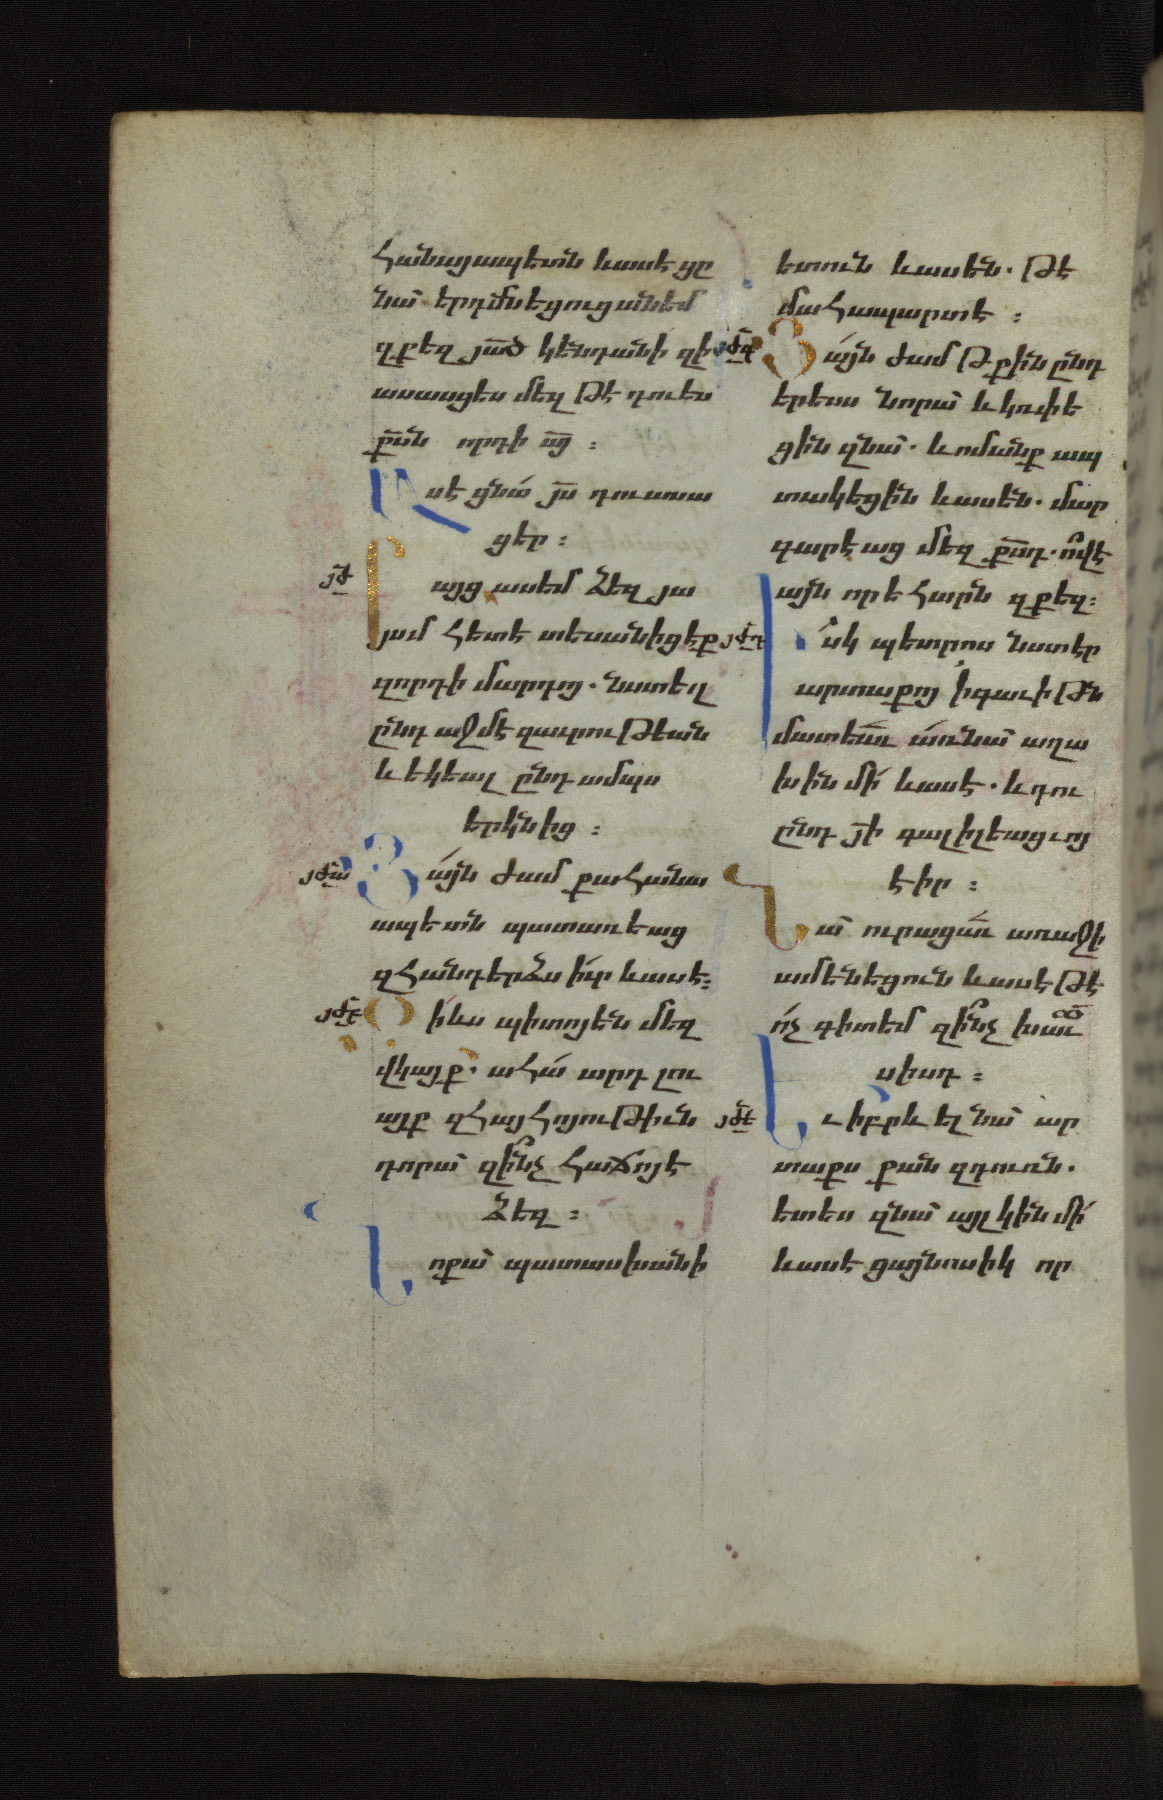 հանայապետն և ասէ ցը
նա՛ երդմնեցուցանեմ
զքեզ յա՟ծ կենդանի զի
ասասցես մեզ թէ դու ես
ք՟սն որդի ա՟յ ։
Ասէ ցնա՛ յ՟ս դու ասա
ցեր ։
յժ
Բայց ասեմ ձեզ յա
յսմ հետէ տեսանիցէք
զորդի մարդոյ . նստել
ընդ աջմէ զաւրութեան
և եկեալ ընդ ամպս
երկնից ։
յժա
Յայն ժամ քահանա
ապետն պատառեաց
զհանդերձս իւր և ասէ ։
յժբ
Օ իևս պիտոյ են մեզ
վկայք . ահա՛ արդ լու
այք զհայհոյութիւն
դորա՛ զի՞նչ հաճոյ է
ձեզ ։
Նոքա՛ պատասխանի
ետուն և ասեն . թէ
մահապարտ է ։
յժգ
Յայն ժամ թքին ընդ
երեսս նորա՛ և կռփե
ցին զնա՛ . և ոմանք ապ
տակեցին և ասեն . մար
գարէաց մեզ ք՟սդ . ո՞վ է
այն որ եհարն զքեզ ։
յժդ
Իսկ պետրոս նստէր
արտաքոյ ի գաւիթն
մատեա՟ւ առ նա՛ աղա
խին մի՛ և ասէ . և դու
ընդ յ՟ի գալիլեացւոյ
էիր ։
Նա՛ ուրացա՟ւ առաջի
ամենեցուն և ասէ թէ
ո՛չ գիտեմ զի՞նչ խաւ
սիսդ ։
յժե
Եւ իբրև ել նա՛ ար
տաքս քան զդուռն .
ետես զնա՛ այլ կին մի՛
և ասէ ցայնոսիկ որ